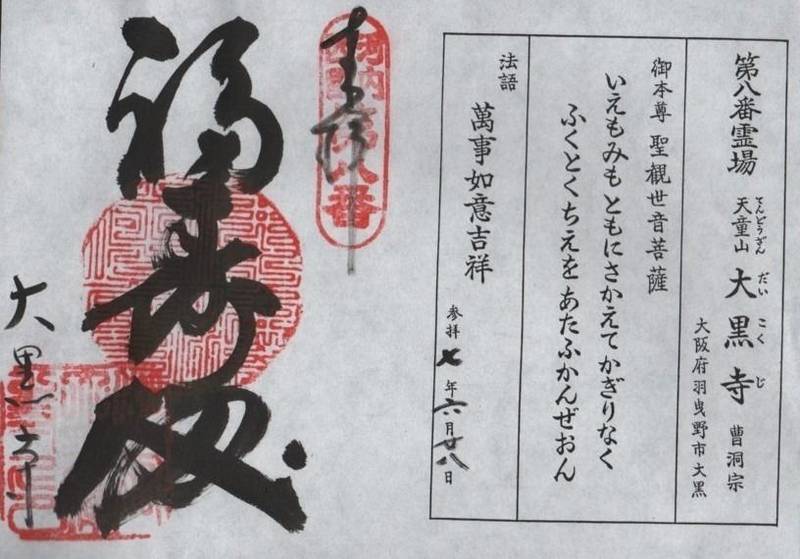 第八番霊場
天童山 大黒寺 曹洞宗
てんどうざん だいこくじ
大阪府羽曳野市大黒
御本尊 聖観世音菩薩
いえもみも ともにさかえて かぎりなく
ふくとくちえを あたふかんぜおん
法語
萬事如意吉祥
参拝 七年六月廿八日
奉拝
第八番
福寿
大黒寺